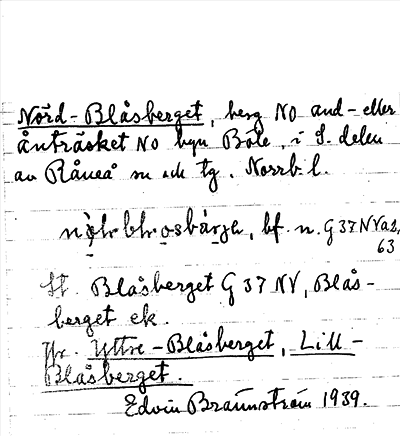 Nörd-Blåsberget, berg NO and-eller
ånträsket NO byn Böle, i S. delen
av Råneå sn och tg. Norrb. l.
bf. n. G 37 NV a2,
63
St. Blåsberget G 37 NV, Blås-
berget ek.
Jfr. Yttre-Blåsberget, Lill-
Blåsberget.
Edvin Brännström 1939.